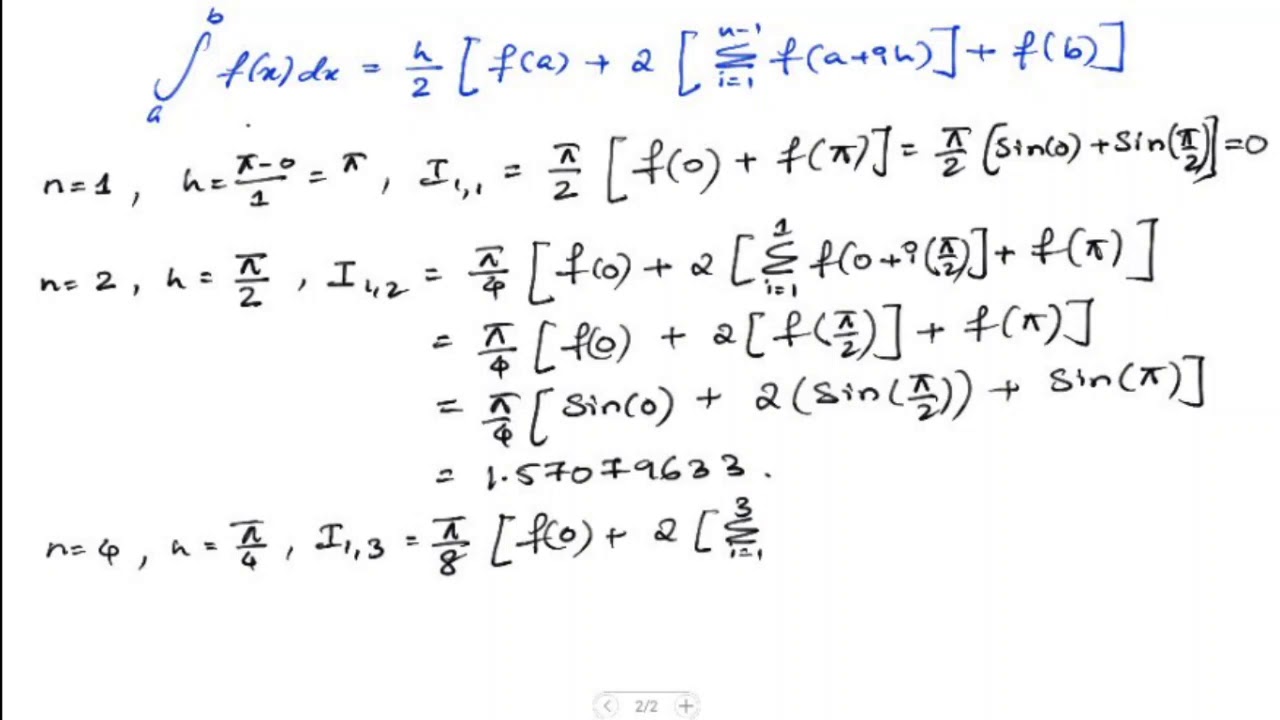 ∫_a^b f(x)dx = h/2 [ f(a) + 2 [ Σ_{i=1}^{n-1} f(a+ih) ] + f(b) ]
n=1 , h = (π-0)/1 = π , I_{1,1} = π/2 [ f(0) + f(π) ] = π/2 [ Sin(0) + Sin(π/2) ] = 0
n=2 , h = π/2 , I_{1,2} = π/4 [ f(0) + 2 [ Σ_{i=1}^{1} f(0+i(π/2) ] + f(π) ]
= π/4 [ f(0) + 2 [ f(π/2) ] + f(π) ]
= π/4 [ Sin(0) + 2 ( Sin(π/2) ) + Sin(π) ]
= 1.57079633 .
n=4 , h = π/4 , I_{1,3} = π/8 [ f(0) + 2 [ Σ_{i=1}^{3}
< 2/2 +